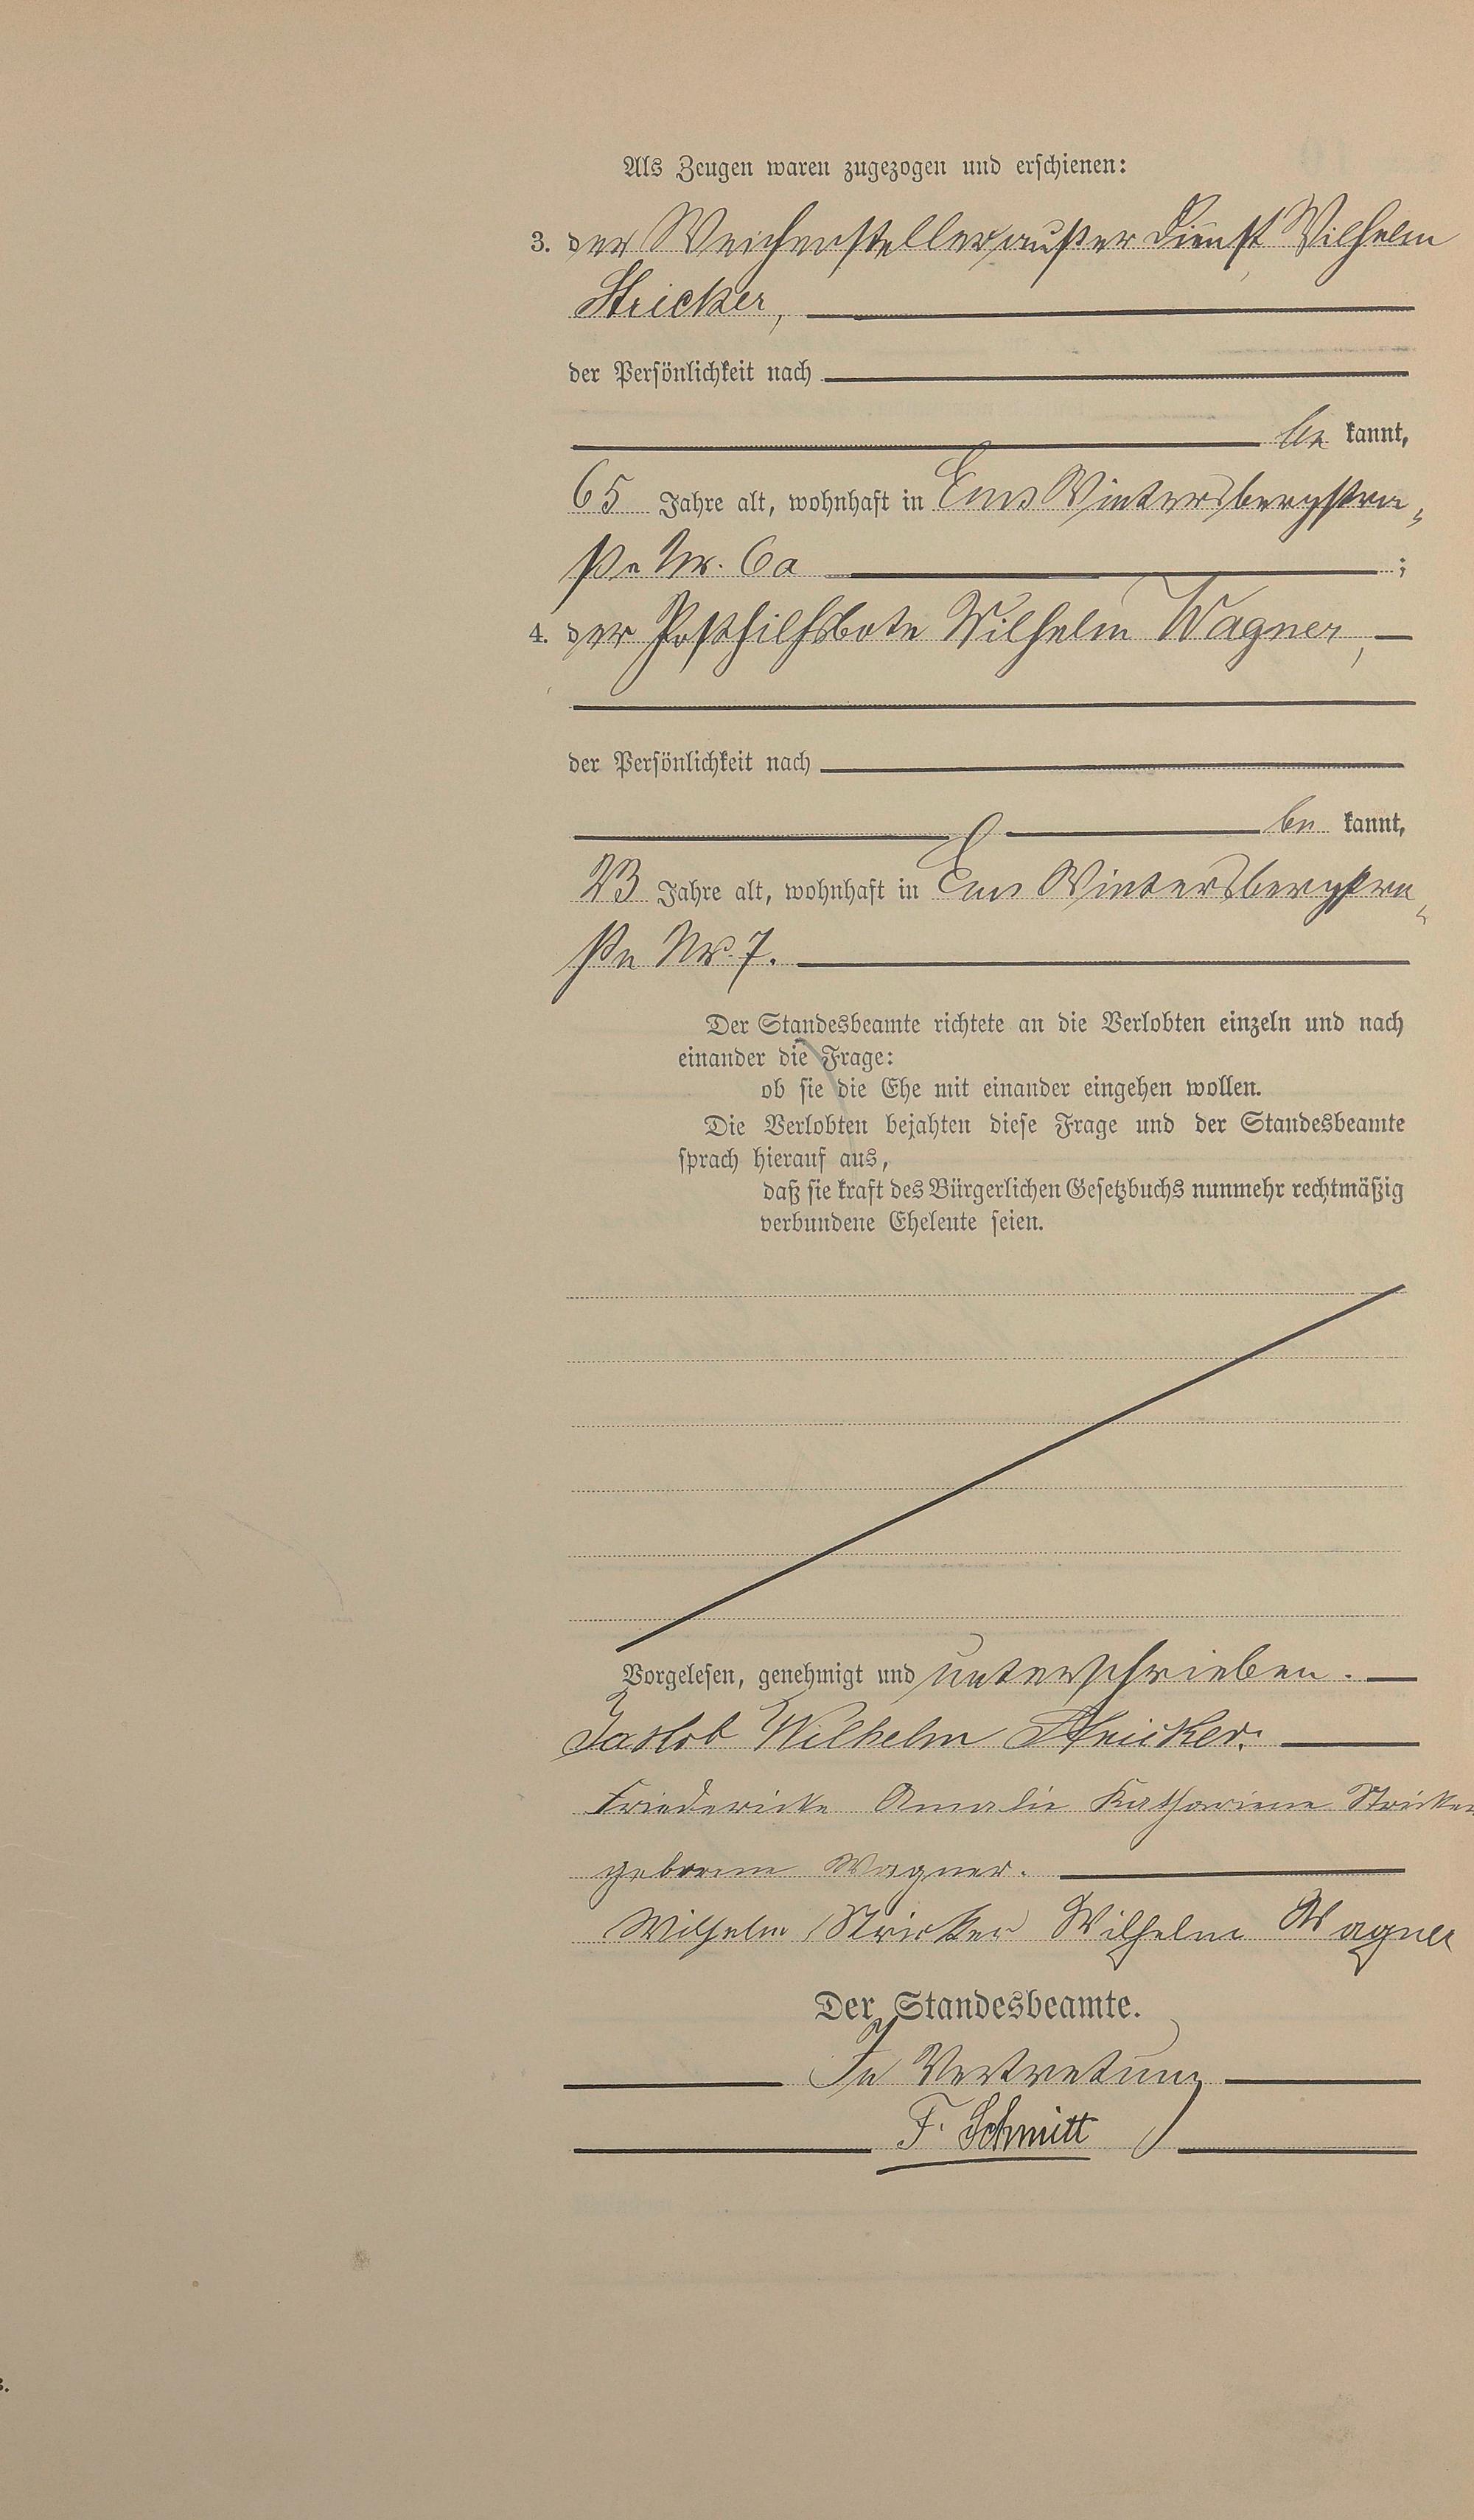 Als Zeugen waren zugezogen und erschienen:
3. der Weichensteller außer Dienst Wilhelm
Stricker,
der Persönlichkeit nach
be kannt,
65 Jahre alt, wohnhaft in Ems Wintersbergstra-
ße Nr. 6a ;
4. der Posthilfsbote Wilhelm Wagner,
der Persönlichkeit nach
be kannt,
23 Jahre alt, wohnhaft in Ems Wintersbergstra-
ße Nr. 7.
Der Standesbeamte richtete an die Verlobten einzeln und nach
einander die Frage:
ob sie die Ehe mit einander eingehen wollen.
Die Verlobten bejahten diese Frage und der Standesbeamte
sprach hierauf aus,
daß sie kraft des Bürgerlichen Gesetzbuchs nunmehr rechtmäßig
verbundene Eheleute seien.
Vorgelesen, genehmigt und unterschrieben.
Jakob Wilhelm Stricker.
Friedericke Amalie Katharine Stricker
geborene Wagner.
Wilhelm Stricker Wilhelm Wagner
Der Standesbeamte.
In Vertretung
F. Schmitt